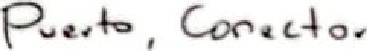 Puerto, Conector